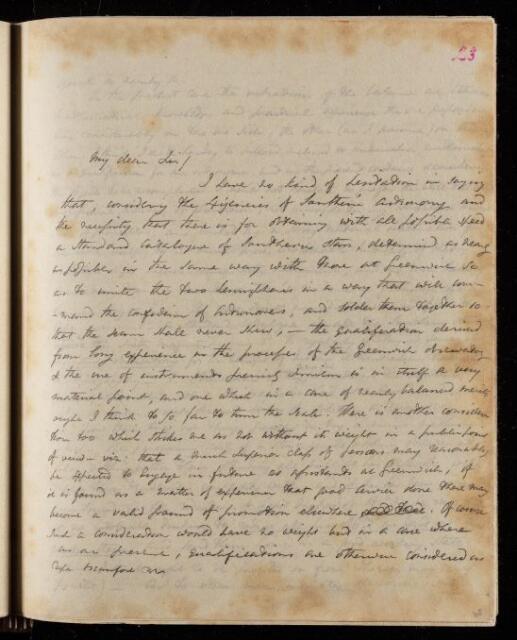 23
My dear Sir!
I have no kind of hesitation in saying
that, considering the exigencies of Southern Astronomy and
the necessity that there is for obtaining with all possible speed
a Standard Catalogue of Southern Stars, determined as nearly
as possible in the same way with those at Greenwich so
as to unite the two hemispheres in a way that will com-
-mand the confidence of Astronomers, and solder them together so
that the seam shall never show; — the qualification derived
from long experience in the processes of the Greenwich observatory
& the use of instruments precisely similar is in itself a very
material point, and one which in a case of nearly balanced merit
ought I think to go far to turn the scale. There is another considera
tion too which strikes me as not without its weight in a public point
of view – viz: that a much superior class of persons may reasonably
be expected to engage in future as assistants at Greenwich, if
it is found as a matter of experience that good service done there may
become a valid ground of promotion elsewhere. Of course
such a consideration would have no weight but in a case where
as at present, qualifications are otherwise considered as